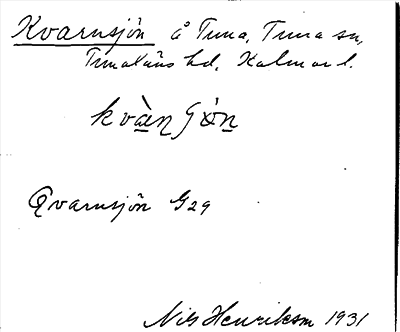 Kvarnsjön å Tuna, Tuna sn,
Tunaläns hd, Kalmar l.
kvàn̠ ʃön̠
Qvarnsjön G29
Nils Henriksm 1931